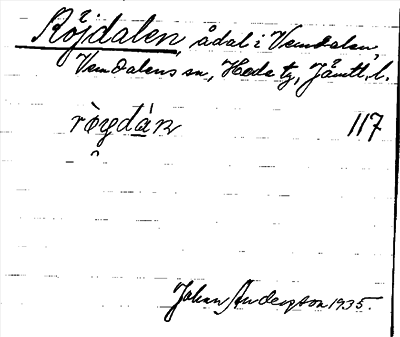 Röjdalen, ådal i Vemdalen,
Vemdalens sn, Hede tg, Jämtl. l.
rὸydán 117
Johan Anderson 1935.